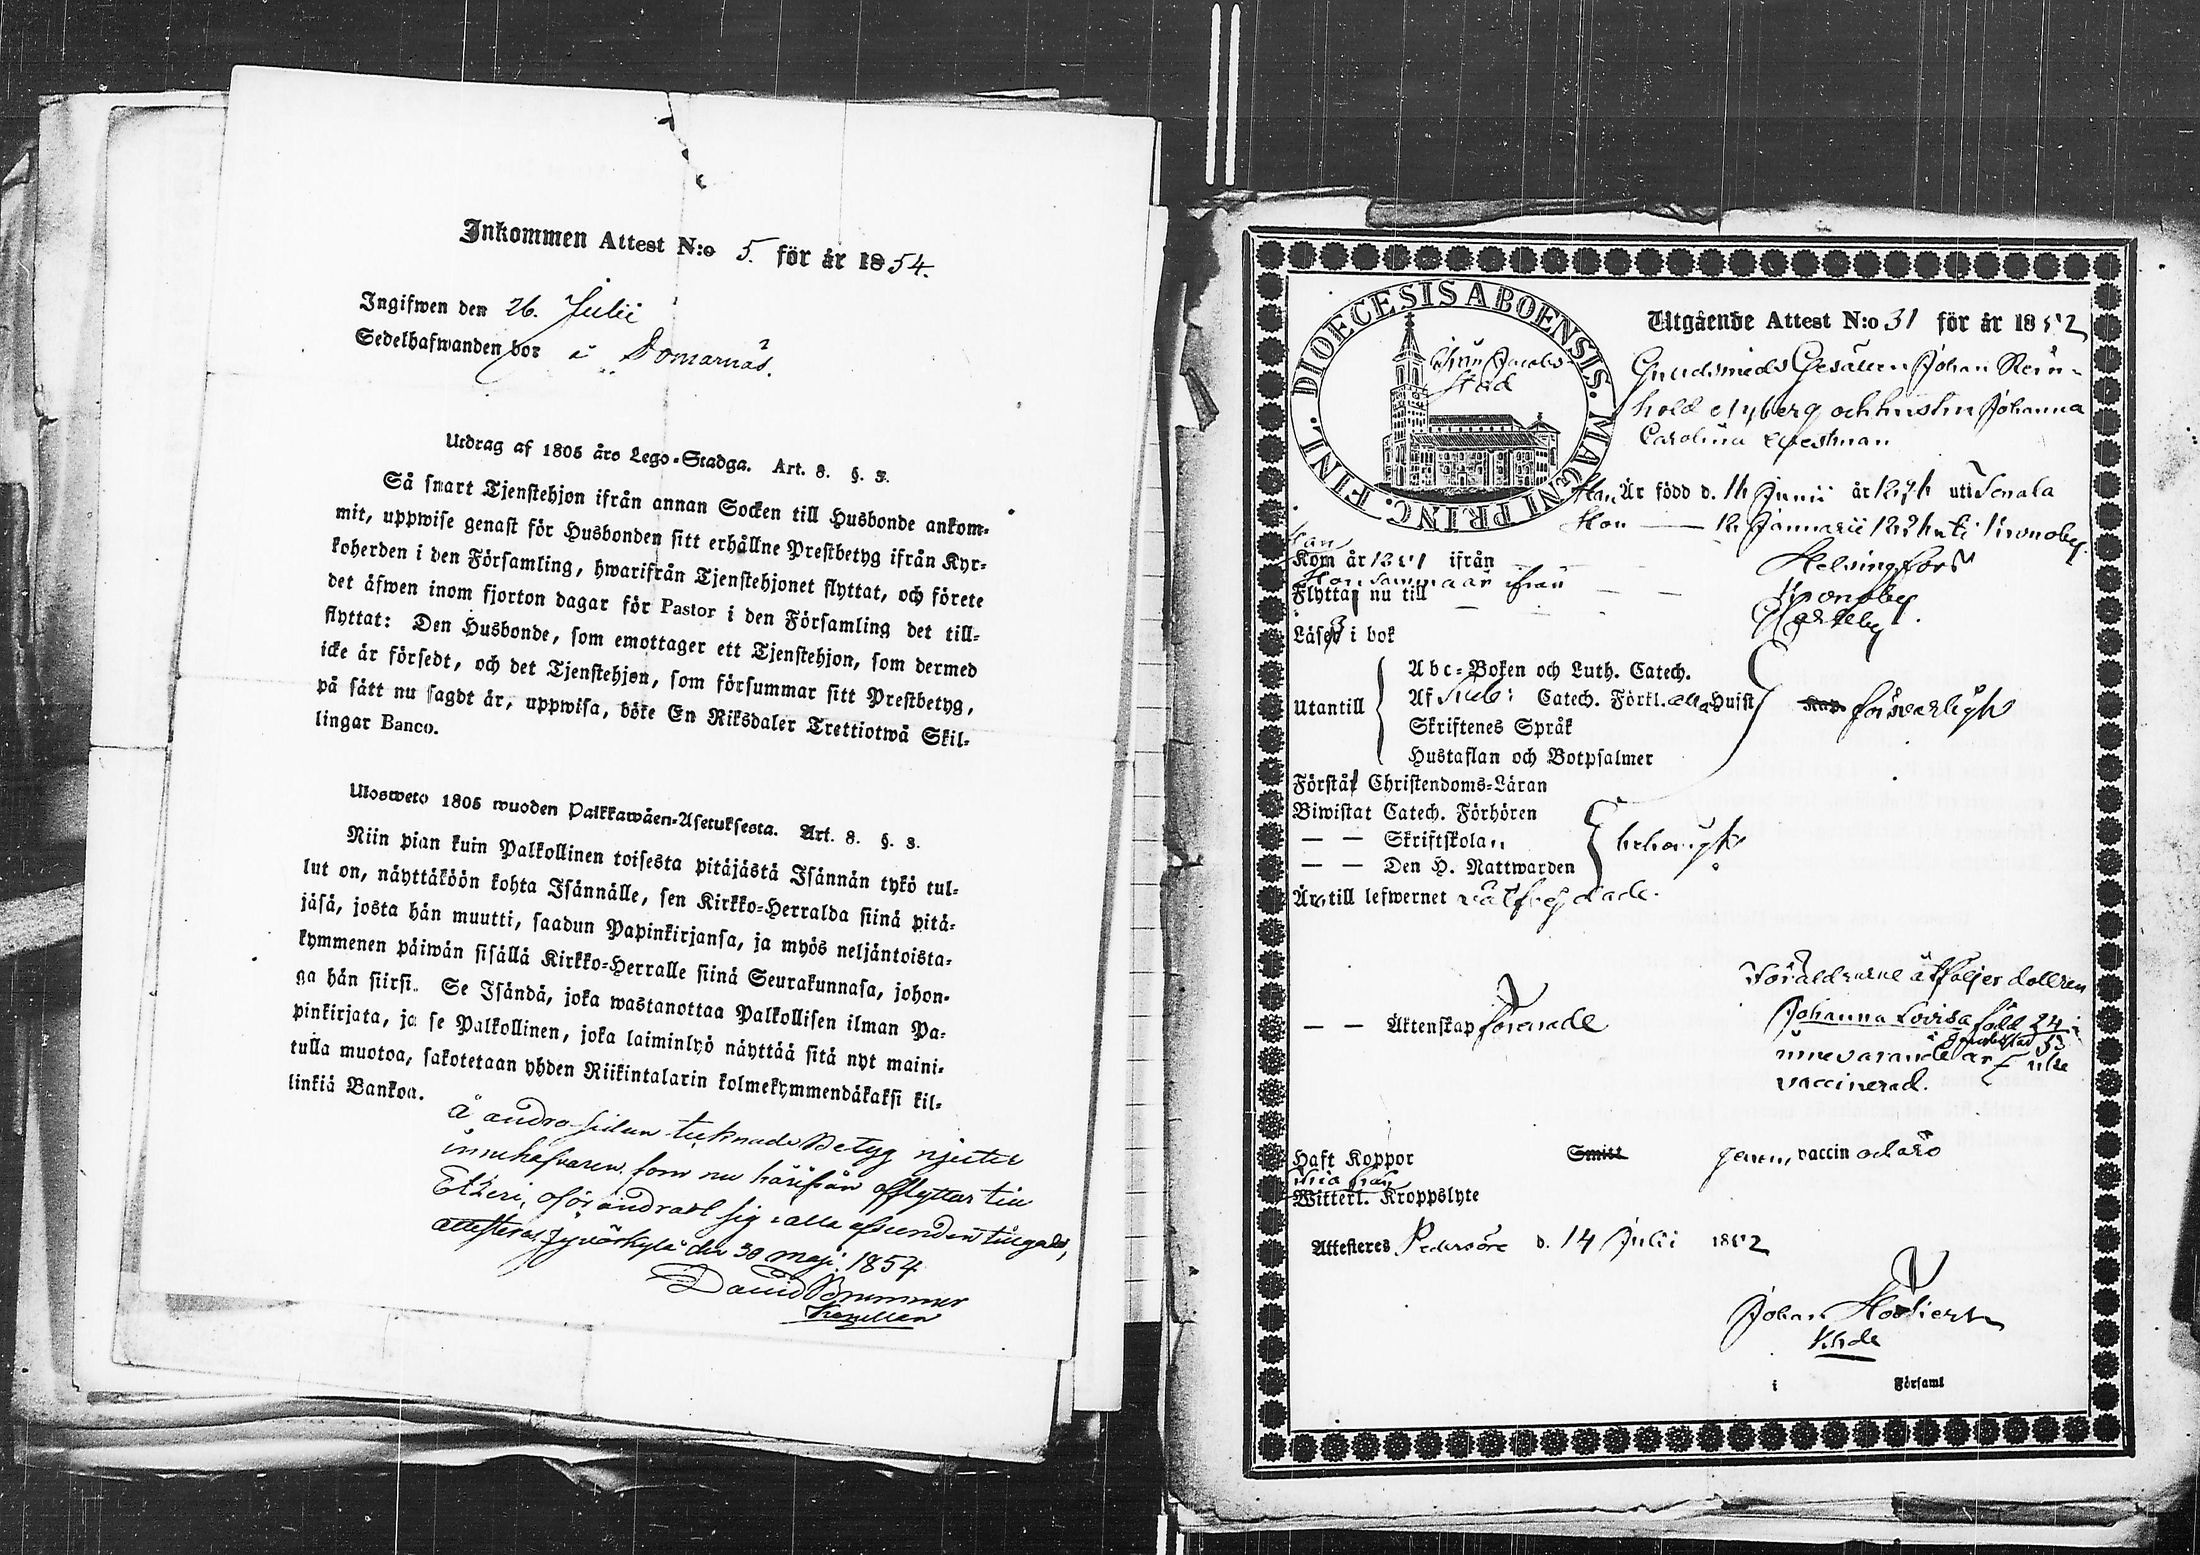 Inkommen Attest N:o 5. för år 1854.
Ingifwen den 26. Julii
Sedelhafwanden bor i Domarnäs.
Utdrag af 1805 års Lego-Stadga. Art. 8. §. 3.
Så snart Tjenstehjon ifrån annan Socken till Husbonde ankom-
mit, uppwise genast för Husbonden sitt erhållne Prestbetyg ifrån Kyr-
koherden i den Församling, hwarifrån Tjenstehjonet flyttat, och förete
det äfwen inom fjorton dagar för Pastor i den Församling det till-
flyttat: Den Husbonde, som emottager ett Tjenstehjon, som dermed
icke är försedt, och det Tjenstehjon, som försummar sitt Prestbetyg,
på sätt nu sagdt är, uppwisa, böte En Riksdaler Trettiotwå Skil-
lingar Banco.
Ulosweto 1805 wuoden Palkkawäen-Asetuksesta. Art. 8. §. 3.
Niin pian kuin Palkollinen toisesta pitäjästä Isännän tykö tul-
lut on, näyttäköön kohta Isännälle, sen Kirkko-Herralda siinä pitä-
jäsä, josta hän muutti, saadun Papinkirjansa, ja myös neljäntoista-
kymmenen päiwän sisällä Kirkko-Herralle siinä Seurakunnasa, johon-
ga hän siirsi. Se Isändä, joka wastanottaa Palkollisen ilman Pa-
pinkirjata, ja se Palkollinen, joka laiminlyö näyttää sitä nyt maini-
tulla muotoa, sakotetaan yhden Riikintalarin kolmekymmendäkaksi kil-
linkiä Bankoa.
Å andra sidan tecknade Betyg njuter
innehafvaren, som nu härifrån afflyttar till
Etseri, oförändradt sig i alla afseenden tillgodo,
attesteras. Jyväskylä den 30 maj. 1854
David Brummer
DIOECESIS ABOENSIS. MAGNI PRINC. FINL.
ifrån Jacob-
stad
Utgående Attest N:o 31 för år 1852
Guldsmeds Gesällen Johan Rein-
hold Nyberg och hustru Johanna
Carolina Westman
Han Är född d. Junii år uti Tenala
Hon — Januarii uti Kronoby
Han
Kom år 1851 ifrån Helsingfors
Hon samma år ifrån Kronoby
Flytta nu till Karleby.
Läser i bok
Abc-Boken och Luth. Catech.
Utantill Af Sveb: Catech. Förkl. alla Hufst
Skriftenes Språk
Hustaflan och Botpsalmer
försvarligt
Förstå Christendoms-Läran
Biwistat Catech. Förhören
— — Skriftskolan behörigt.
— — Den H. Nattwarden
Äro till lefwernet välfrejdade.
— — Äktenskap förenade
Föräldrarne åtföljer dottren
Johanna Lovisa född 24
Jacobstad
innevarande år, icke
vaccinerad.
Haft Koppor Smitt genom vaccin och äro
fria från
Witterl. Kroppslyte
Attesteres Pedersöre d. 14 Julii 1852
Johan
Khde
i Församl